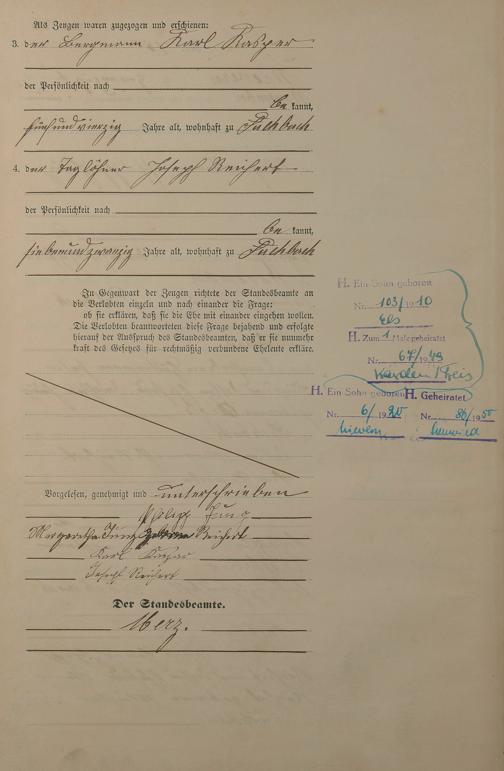 Als Zeugen waren zugezogen und erschienen:
3. der Bergmann Karl Kasper
der Persönlichkeit nach
be kannt,
fünfundvierzig Jahre alt, wohnhaft zu Fischbach
4. der Taglöhner Joseph Reichert
der Persönlichkeit nach
be kannt,
siebenundzwanzig Jahre alt, wohnhaft zu Fischbach
In Gegenwart der Zeugen richtete der Standesbeamte an
die Verlobten einzeln und nach einander die Frage:
ob sie erklären, daß sie die Ehe mit einander eingehen wollen.
Die Verlobten beantworteten diese Frage bejahend und erfolgte
hierauf der Ausspruch des Standesbeamten, daß er sie nunmehr
kraft des Gesetzes für rechtmäßig verbundene Eheleute erkläre.
H. Ein Sohn geboren
Nr. 103/1910
Els
H. Zum 1. Male geheiratet
Nr. 67/1949
H. Ein Sohn geboren
Nr. 6/1920
H. Geheiratet
Nr. 86/1950
Neuwied
Vorgelesen, genehmigt und unterschrieben
Philipp Jung
Margaretha Jung geborene Reichert
Karl Kasper
Joseph Reichert
Der Standesbeamte.
Merz.